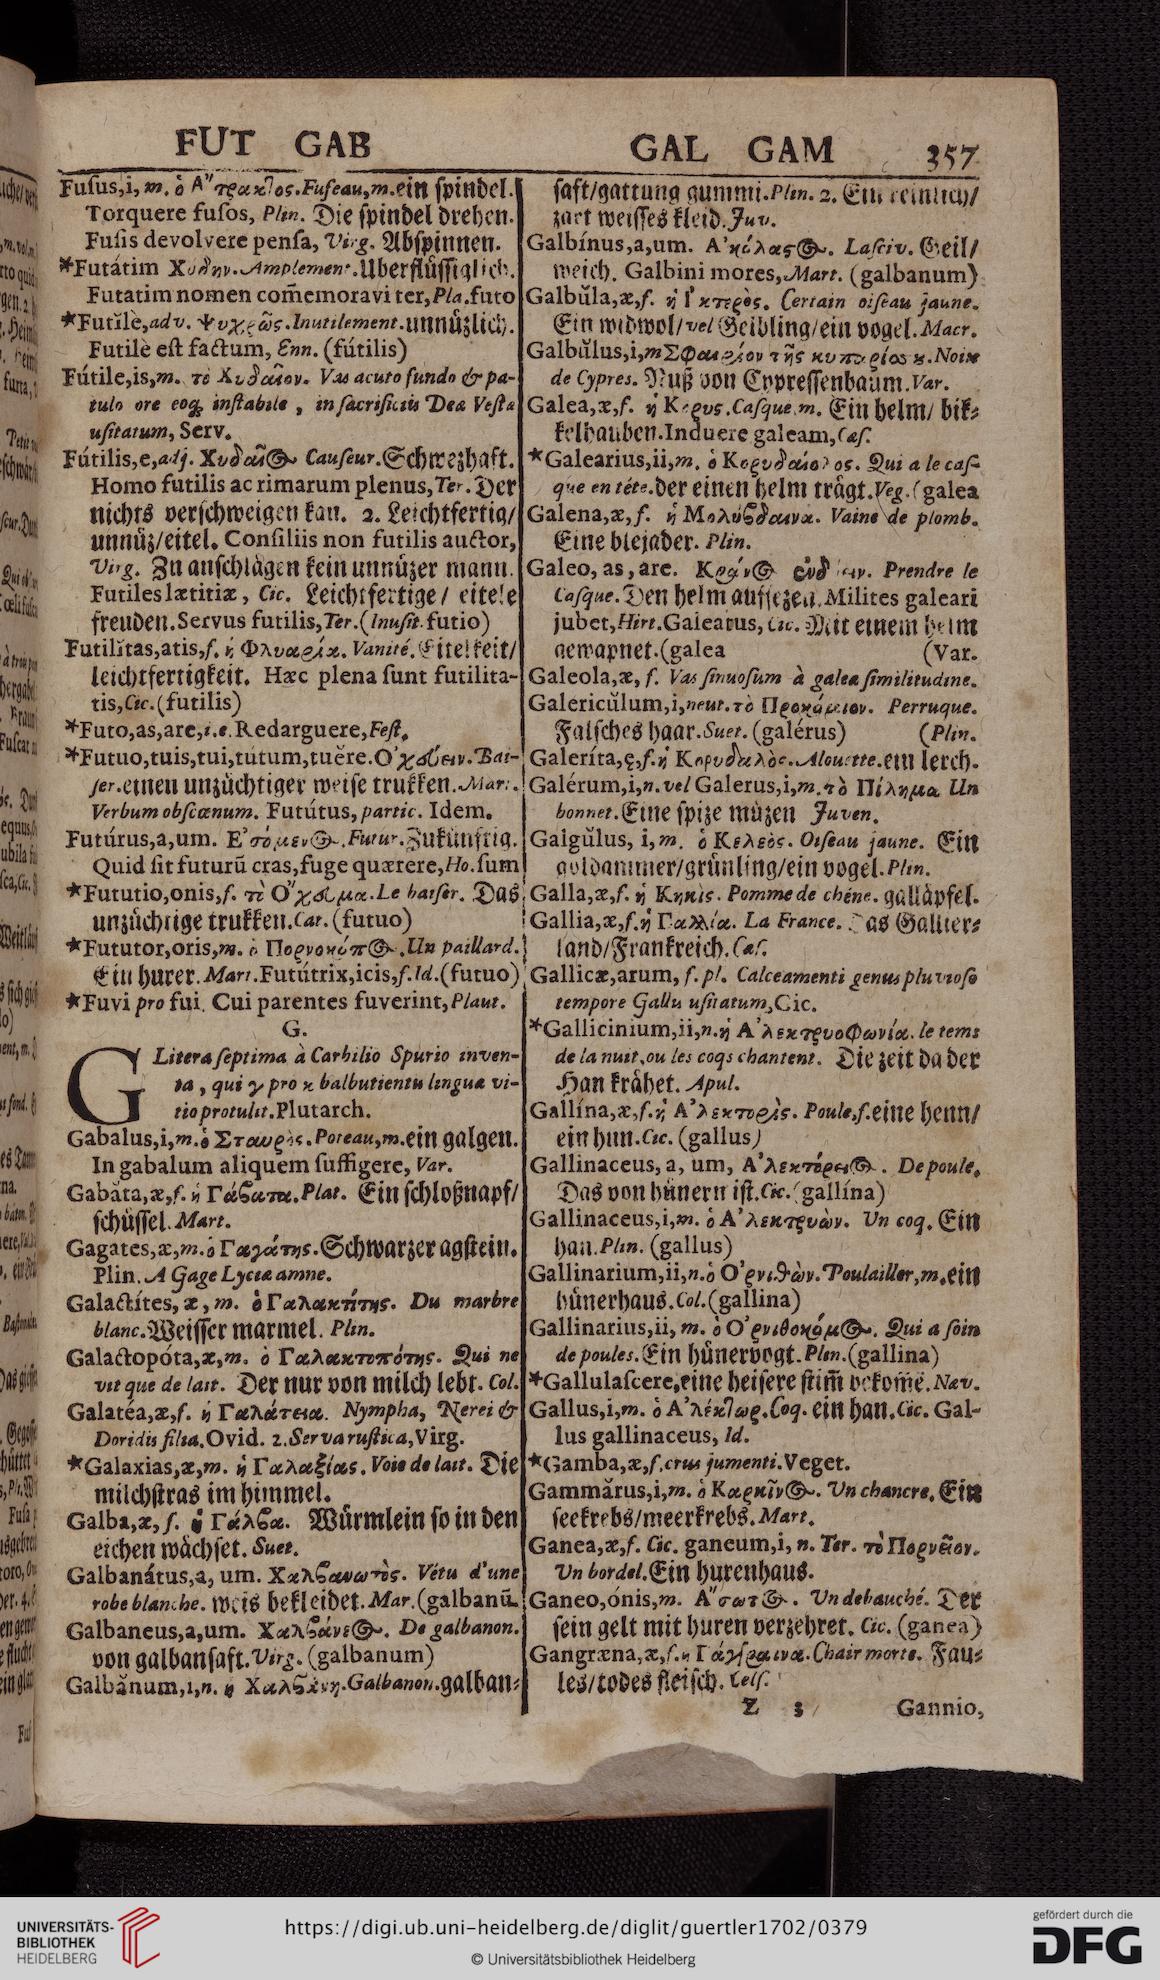 FUT GAB
Fusus, i, m. ὁ Ἄτρακτος. Fuseau, m. ein spindel.
Torquere fusos, Plin. Die spindel drehen.
Fusis devolvere pensa, Virg. Abspinnen.
*Futátim Χύδην. Amplement. Uberflüssiglich.
Futatim nomen com̃emoravi ter, Pla. futo
*Futĭlè, adv. Ψυχρῶς. Inutilement. unnützlich.
Futilè est factum, Enn. (fútilis)
Fútile, is, m. τὸ Χυδαῖον. Vas acuto fundo & pa-
tulo ore eoq; instabile, in sacrificiis Deæ Vestæ
usitatum, Serv.
Fútilis, e, adj. Χυδαῖος Causeur. Schwezhaft.
Homo futilis ac rimarum plenus, Ter. Der
nichts verschweigen kan. 2. Leichtfertig/
unnüz/eitel. Consiliis non futilis auctor,
Virg. Zu anschlägen kein unnüzer mann.
Futiles lætitiæ, Cic. Leichtfertige/ eitele
freuden. Servus futilis, Ter. (Inusit. futio)
Futilĭtas, atis, f. ἡ Φλυαρία. Vanité. Eitelkeit/
leichtfertigkeit. Hæc plena sunt futilita-
tis, Cic. (futilis)
*Futo, as, are, i.e. Redarguere, Fest.
*Futuo, tuis, tui, tútum, tuĕre. Ὀχεύειν. Bai-
ser. einen unzüchtiger weise trukken. Mart.
Verbum obscœnum. Futútus, partic. Idem.
Futúrus, a, um. Ἐσόμενος. Futur. Zukünftig.
Quid sit futurũ cras, fuge quærere, Ho. sum
*Fututio, onis, f. τὸ Ὄχευμα. Le baiser. Das
unzüchtige trukken. Cat. (futuo)
*Fututor, oris, m. ὁ Πορνοκόπος. Un paillard.
Ein hurer. Mart. Futútrix, icis, f. Id. (futuo)
*Fuvi pro fui. Cui parentes fuverint, Plaut.
G.
G Litera septima à Carbilio Spurio inven-
ta, qui γ pro κ balbutientis linguæ vi-
tio protulit. Plutarch.
Gabalus, i, m. ὁ Σταυρὸς. Poteau, m. ein galgen.
In gabalum aliquem suffigere, Var.
Gabăta, æ, f. ἡ Γάβατα. Plat. Ein schloßnapf/
schüssel. Mart.
Gagates, æ, m. ὁ Γαγάτης. Schwarzer agstein.
Plin. A Gage Lyciæ amne.
Galactítes, æ, m. ὁ Γαλακτίτης. Du marbre
blanc. Weisser marmel. Plin.
Galactopóta, æ, m. ὁ Γαλακτοπότης. Qui ne
vit que de lait. Der nur von milch lebt. Col.
Galatéa, æ, f. ἡ Γαλάτεια. Nympha, Nerei &
Doridis filia. Ovid. 2. Serva rustica, Virg.
*Galaxias, æ, m. ἡ Γαλαξίας. Voie de lait. Die
milchstras im himmel.
Galba, æ, f. ἡ Γάλβα. Würmlein so in den
eichen wächset. Suet.
Galbanátus, a, um. Χαλβανωτὸς. Vétu d'une
robe blanche. weis bekleidet. Mar. (galbanũ
Galbaneus, a, um. Χαλβάνεος. De galbanon.
von galbansaft. Virg. (galbanum)
Galbănum, i, n. ἡ Χαλβάνη. Galbanon. galban-
GAL GAM 357
saft/gattung gummi. Plin. 2. Ein reinlich/
zart weisses kleid. Juv.
Galbínus, a, um. Ἀκόλαστος. Lasciv. Geil/
weich. Galbini mores, Mart. (galbanum)
Galbŭla, æ, f. ἡ Ἴκτερὸς. Certain oiseau jaune.
Ein widwol/vel Geibling/ein vogel. Macr.
Galbŭlus, i, m Σφαιρίον τῆς κυπαρίσσου. Noix
de Cypres. Nuß von Cypressenbaum. Var.
Galea, æ, f. ἡ Κόρυς. Casque, m. Ein helm/ bik-
kelhauben. Induere galeam, Cæs.
*Galearius, ii, m. ὁ Κορυδαίολος. Qui a le cas-
que en téte. der einen helm trägt. Veg. (galea
Galena, æ, f. ἡ Μολύβδαινα. Vaine de plomb.
Eine bleiader. Plin.
Galeo, as, are. Prendre le
Casque. Den helm aufsezen. Milites galeari
jubet, Hirt. Galeatus, Cic. Mit einem helm
gewapnet. (galea (Var.
Galeola, æ, f. Vas sinuosum à galeæ similitudine.
Galericŭlum, i, neut. τὸ Προκόμειον. Perruque.
Falsches haar. Suet. (galérus) (Plin.
Galeríta, ę, f. ἡ Κορυδαλὸς. Alouette. ein lerch.
Galérum, i, n. vel Galerus, i, m. τὸ Πίλημα Un
bonnet. Eine spize müzen Juven.
Galgŭlus, i, m. ὁ Κελεὸς. Oiseau jaune. Ein
goldammer/grünling/ein vogel. Plin.
Galla, æ, f. ἡ Κηκὶς. Pomme de chéne. galläpfel.
Gallia, æ, f. ἡ Γαλλία. La France. Das Gallier-
land/Frankreich. Cæs.
Gallicæ, arum, f. pl. Calceamenti genus pluvioso
tempore Gallis usitatum, Cic.
*Gallicinium, ii, n. ἡ Ἀλεκτρυοφωνία. le tems
de la nuit, ou les coqs chantent. Die zeit da der
Han krähet. Apul.
Gallína, æ, f. ἡ Ἀλεκτορὶς. Poule, f. eine henn/
ein hun. Cic. (gallus)
Gallinaceus, a, um, Ἀλεκτόρειος. De poule.
Das von hünern ist. Cic. (gallína)
Gallinaceus, i, m. ὁ Ἀλεκτρυὼν. Un coq. Ein
han. Plin. (gallus)
Gallinarium, ii, n. ὁ Ὀρνιθὼν. Poulailler, m. ein
hünerhaus. Col. (gallina)
Gallinarius, ii, m. ὁ Ὀρνιθοκόμος. Qui a soin
de poules. Ein hünervogt. Plin. (gallina)
*Gallulascere, eine heisere stim̃ bekom̃ẽ. Næv.
Gallus, i, m. ὁ Ἀλέκτωρ. Coq. ein han. Cic. Gal-
lus gallinaceus, Id.
*Gamba, æ, f. crus jumenti. Veget.
Gammărus, i, m. ὁ Καρκῖνος. Un chancre. Ein
seekrebs/meerkrebs. Mart.
Ganea, æ, f. Cic. ganeum, i, n. Ter. τὸ Πορνεῖον.
Un bordel. Ein hurenhaus.
Ganeo, ónis, m. Ἄσωτος. Un debauché. Der
sein gelt mit huren verzehret. Cic. (ganea)
Gangræna, æ, f. ἡ Γάγγραινα. Chair morte. Fau-
les/todes fleisch. Cels.
Z 3 Gannio,
UNIVERSITÄTS-
BIBLIOTHEK
HEIDELBERG
https://digi.ub.uni-heidelberg.de/diglit/guertler1702/0379
© Universitätsbibliothek Heidelberg
gefördert durch die
DFG